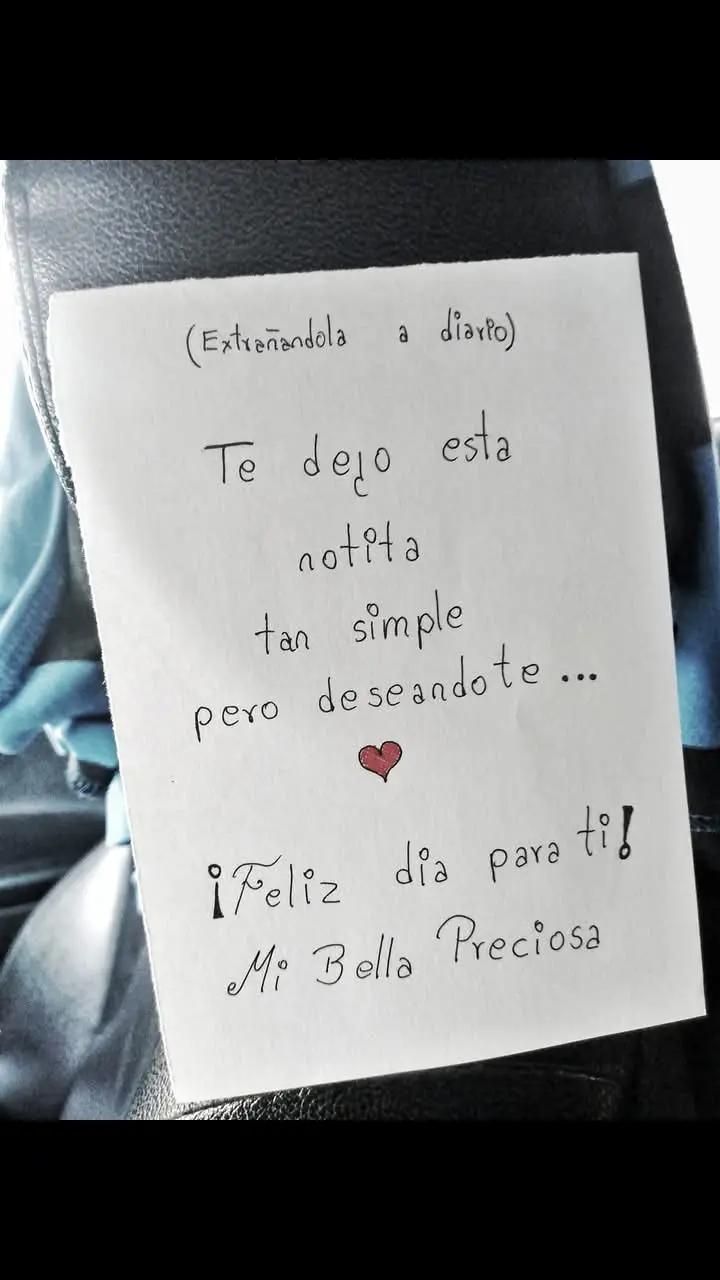 (Extrañandola a diario)
Te dejo esta
notita
tan simple
pero deseandote...
¡Feliz dia para ti!
Mi Bella Preciosa